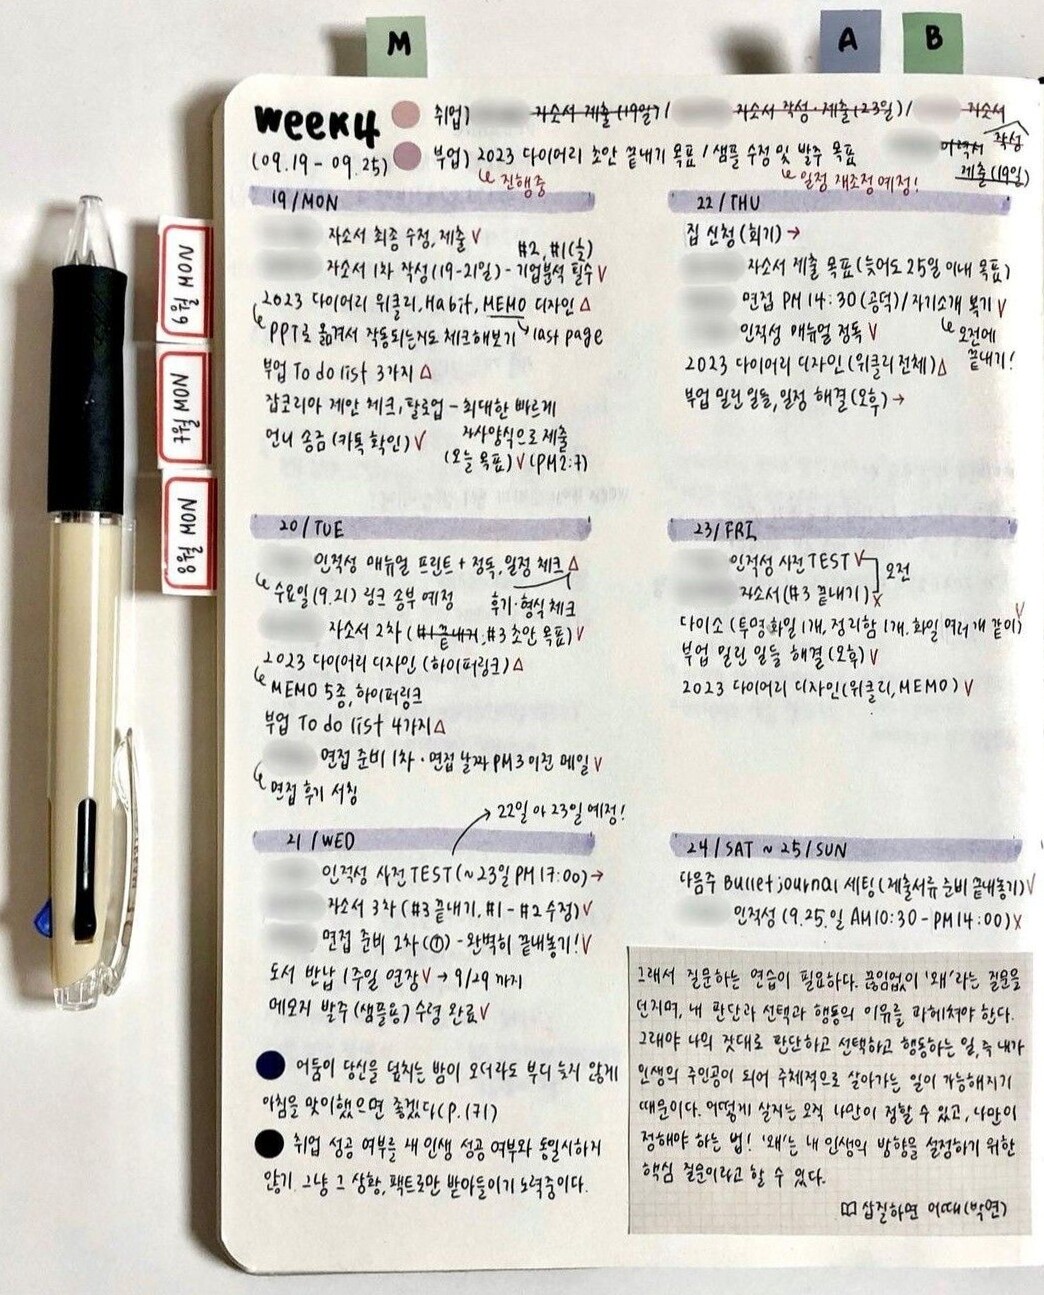 M
A
B
week4
(09.19 - 09.25)
취업) 자소서 제출(19일) / 자소서 작성·제출(23일) / 자소서 작성
이력서 제출(19일)
부업) 2023 다이어리 초안 끝내기 목표 / 샘플 수정 및 발주 목표
↳ 진행중
↳ 일정 재조정 예정!
6월 MON
7월 MON
8월 MON
19/MON
자소서 최종 수정, 제출 ∨
#2, #1(놀)
자소서 1차 작성(19-21일) - 기업분석 필수 ∨
2023 다이어리 위클리, Habit, MEMO 디자인 △
↳ PPT로 옮겨서 작동되는지도 체크해보기 ↘ last page
부업 To do list 3가지 △
잡코리아 제안 체크, 팔로업 - 최대한 빠르게
언니 송금 (카톡 확인) ∨
자사양식으로 제출
(오늘 목표) ∨ (PM2:7)
20/TUE
인적성 매뉴얼 프린트 + 정독, 일정 체크 △
↳ 수요일(9.21) 링크 송부 예정
후기·형식 체크
자소서 2차 (#1 끝내기, #3 초안 목표) ∨
2023 다이어리 디자인 (하이퍼링크) △
↳ MEMO 5종, 하이퍼링크
부업 To do list 4가지 △
면접 준비 1차 · 면접 날짜 PM3 이전 메일 ∨
↳ 면접 후기 서칭
→ 22일 or 23일 예정!
21/WED
인적성 사전 TEST (~23일 PM 17:00) →
자소서 3차 (#3 끝내기, #1-#2 수정) ∨
면접 준비 2차 (①) - 완벽히 끝내놓기! ∨
도서 반납 1주일 연장 ∨ → 9/29 까지
메모지 발주 (샘플용) 수령 완료 ∨
어둠이 당신을 덮치는 밤이 오더라도 부디 늦지 않게
아침을 맞이했으면 좋겠다(P.171)
취업 성공 여부를 내 인생 성공 여부와 동일시하지
않기. 그냥 그 상황, 팩트로만 받아들이기 노력중이다.
22/THU
집 신청 (회기) →
자소서 제출 목표 (늦어도 25일 이내 목표)
면접 PM 14:30 (공덕) / 자기소개 복기 ∨
인적성 매뉴얼 정독 ∨
↳ 오전에 끝내기!
2023 다이어리 디자인 (위클리 전체) △
부업 밀린 일들, 일정 해결 (오후) →
23/FRI
인적성 사전 TEST ∨
자소서 (#3 끝내기) ×
오전
다이소 (투명화일 1개, 정리함 1개, 화일 여러개 같이) ∨
부업 밀린 일들 해결 (오후) ∨
2023 다이어리 디자인 (위클리, MEMO) ∨
24/SAT ~ 25/SUN
다음주 Bullet journal 세팅 (제출서류 준비 끝내놓기) ∨
인적성 (9.25.일 AM10:30 - PM14:00) ×
그래서 질문하는 연습이 필요하다. 끊임없이 '왜'라는 질문을
던지며, 내 판단과 선택과 행동의 이유를 파헤쳐야 한다.
그래야 나의 잣대로 판단하고 선택하고 행동하는 일, 즉 내가
인생의 주인공이 되어 주체적으로 살아가는 일이 가능해지기
때문이다. 어떻게 살지는 오직 나만이 정할 수 있고, 나만이
정해야 하는 법! '왜'는 내 인생의 방향을 설정하기 위한
핵심 질문이라고 할 수 있다.
삽질하면 어때(박연)